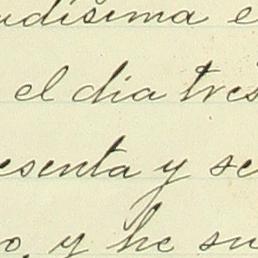 udísima e
el dia tres
esenta y se
o, y he su